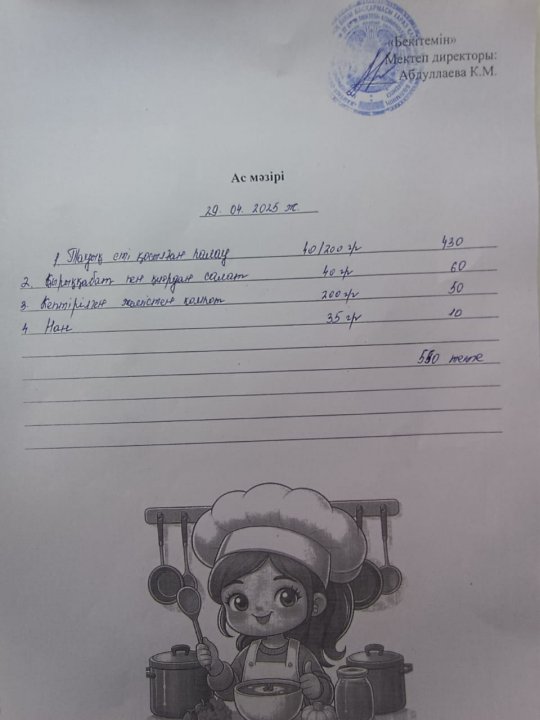 «Бекітемін»
Мектеп директоры:
Абдуллаева К.М.
Ас мәзірі
29. 04. 2025 ж.
1 Тауық еті қосылған палау 40/200 гр 430
2. Қырыққабат пен қиярдан салат 40 гр 60
3 Кептірілген жемістен компот 200 гр 50
4 Нан 35 гр 10
550 теңге